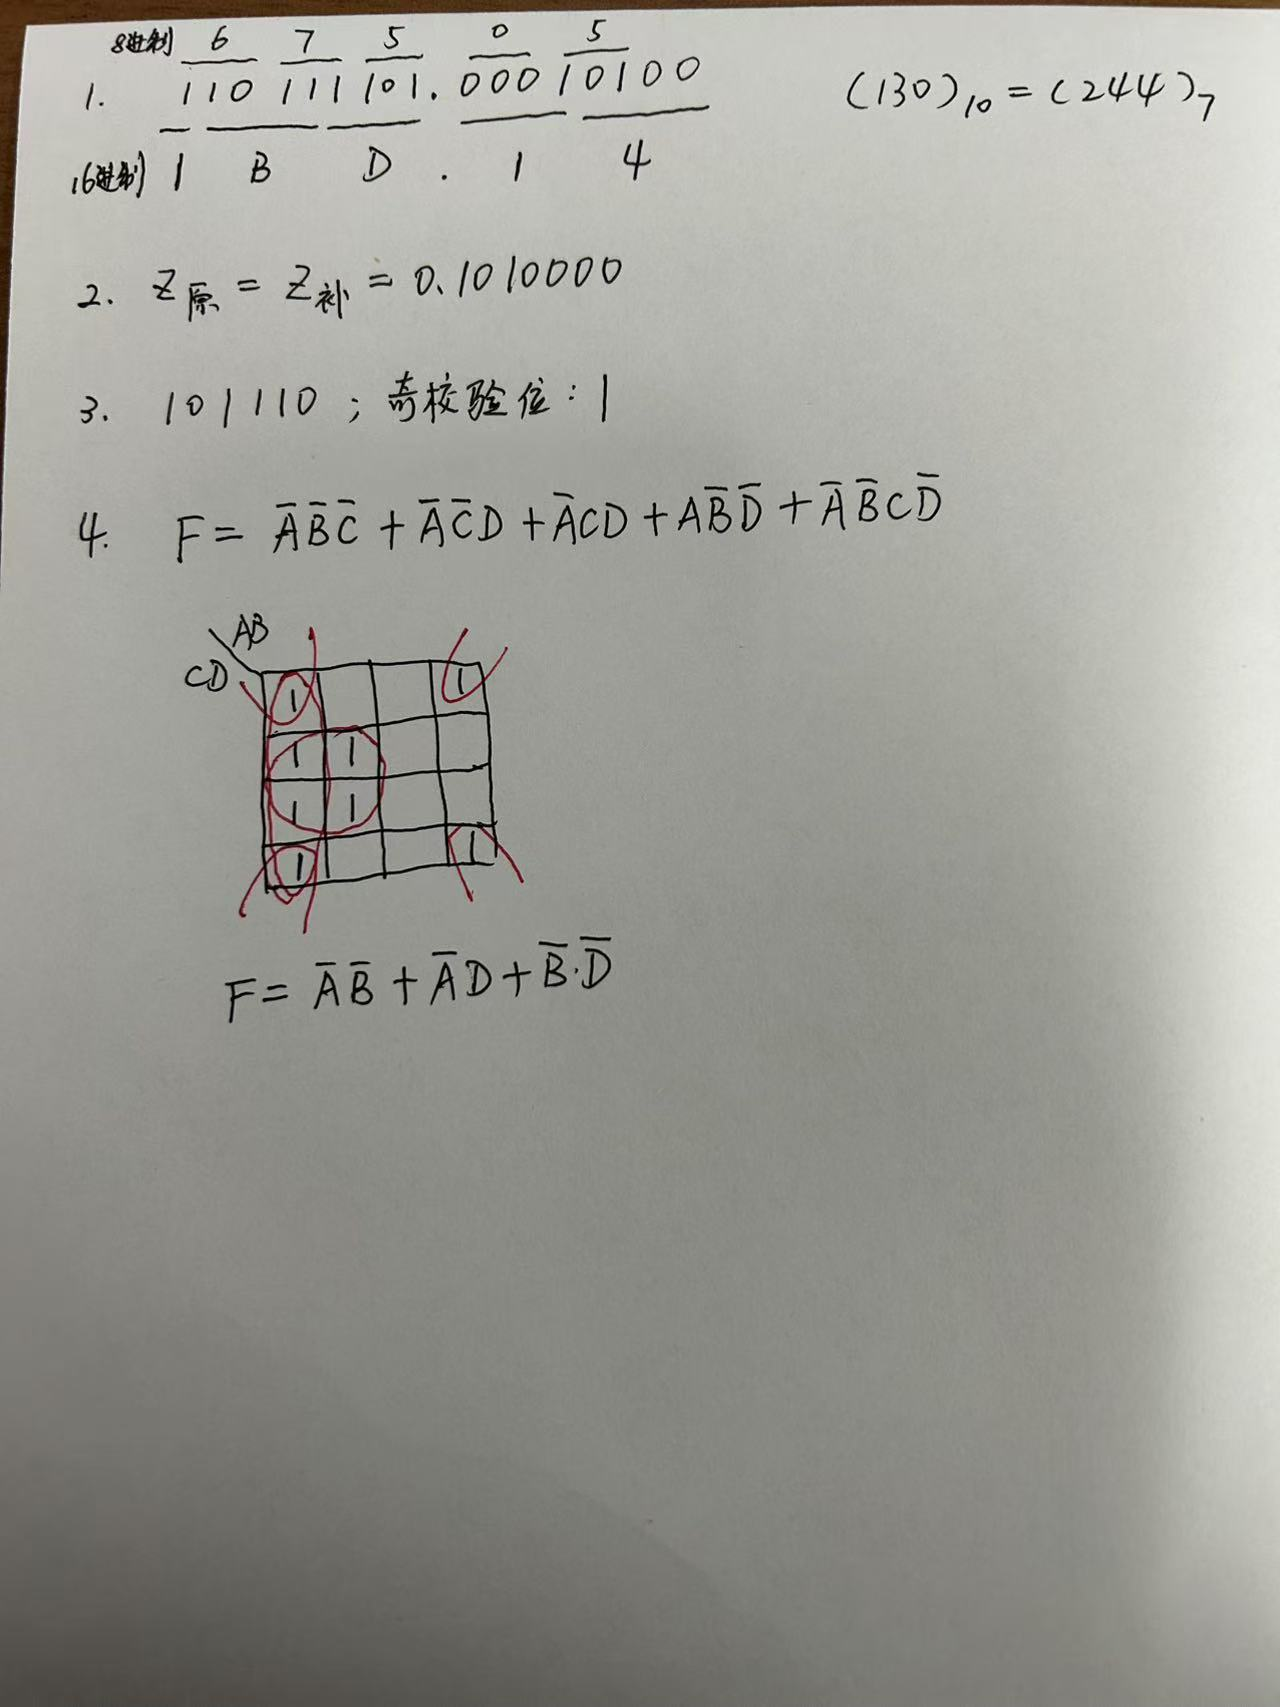 8进制 6 7 5 0 5
1. 110 111 101.000 10100 (130)₁₀ = (244)₇
16进制 1 B D . 1 4
2. Z原 = Z补 = 0.1010000
3. 101110 ; 奇校验位: 1
4. F = A̅B̅C̅ + A̅C̅D + A̅CD + AB̅D̅ + A̅B̅CD̅
AB
CD
1 1
1 1
1 1
1 1
F = A̅B̅ + A̅D + B̅·D̅